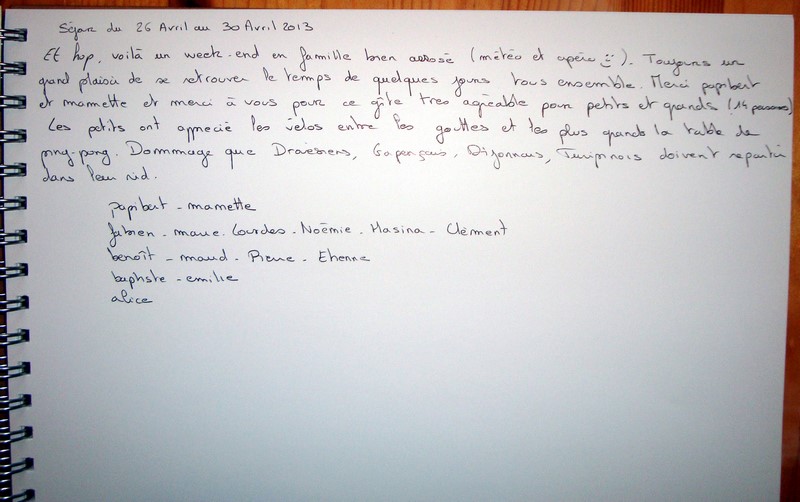 Séjour du 26 Avril au 30 Avril 2013
Et hop, voilà un week-end en famille bien arrosé (météo et apéro). Toujours un
grand plaisir de se retrouver le temps de quelques jours tous ensemble. Merci papibert
et mamette et merci à vous pour ce gîte très agréable pour petits et grands (14 personnes)
Les petits ont apprécié les vélos entre les gouttes et les plus grands la table de
ping-pong. Dommmage que Gapençais, Dijonnais, doivent repartir
dans leur nid.
papibert - mamette
fabien - marie. Lourdes - Noémie - Masina - Clément
benoît - maud - Pierre - Etienne
baptiste - emilie
alice